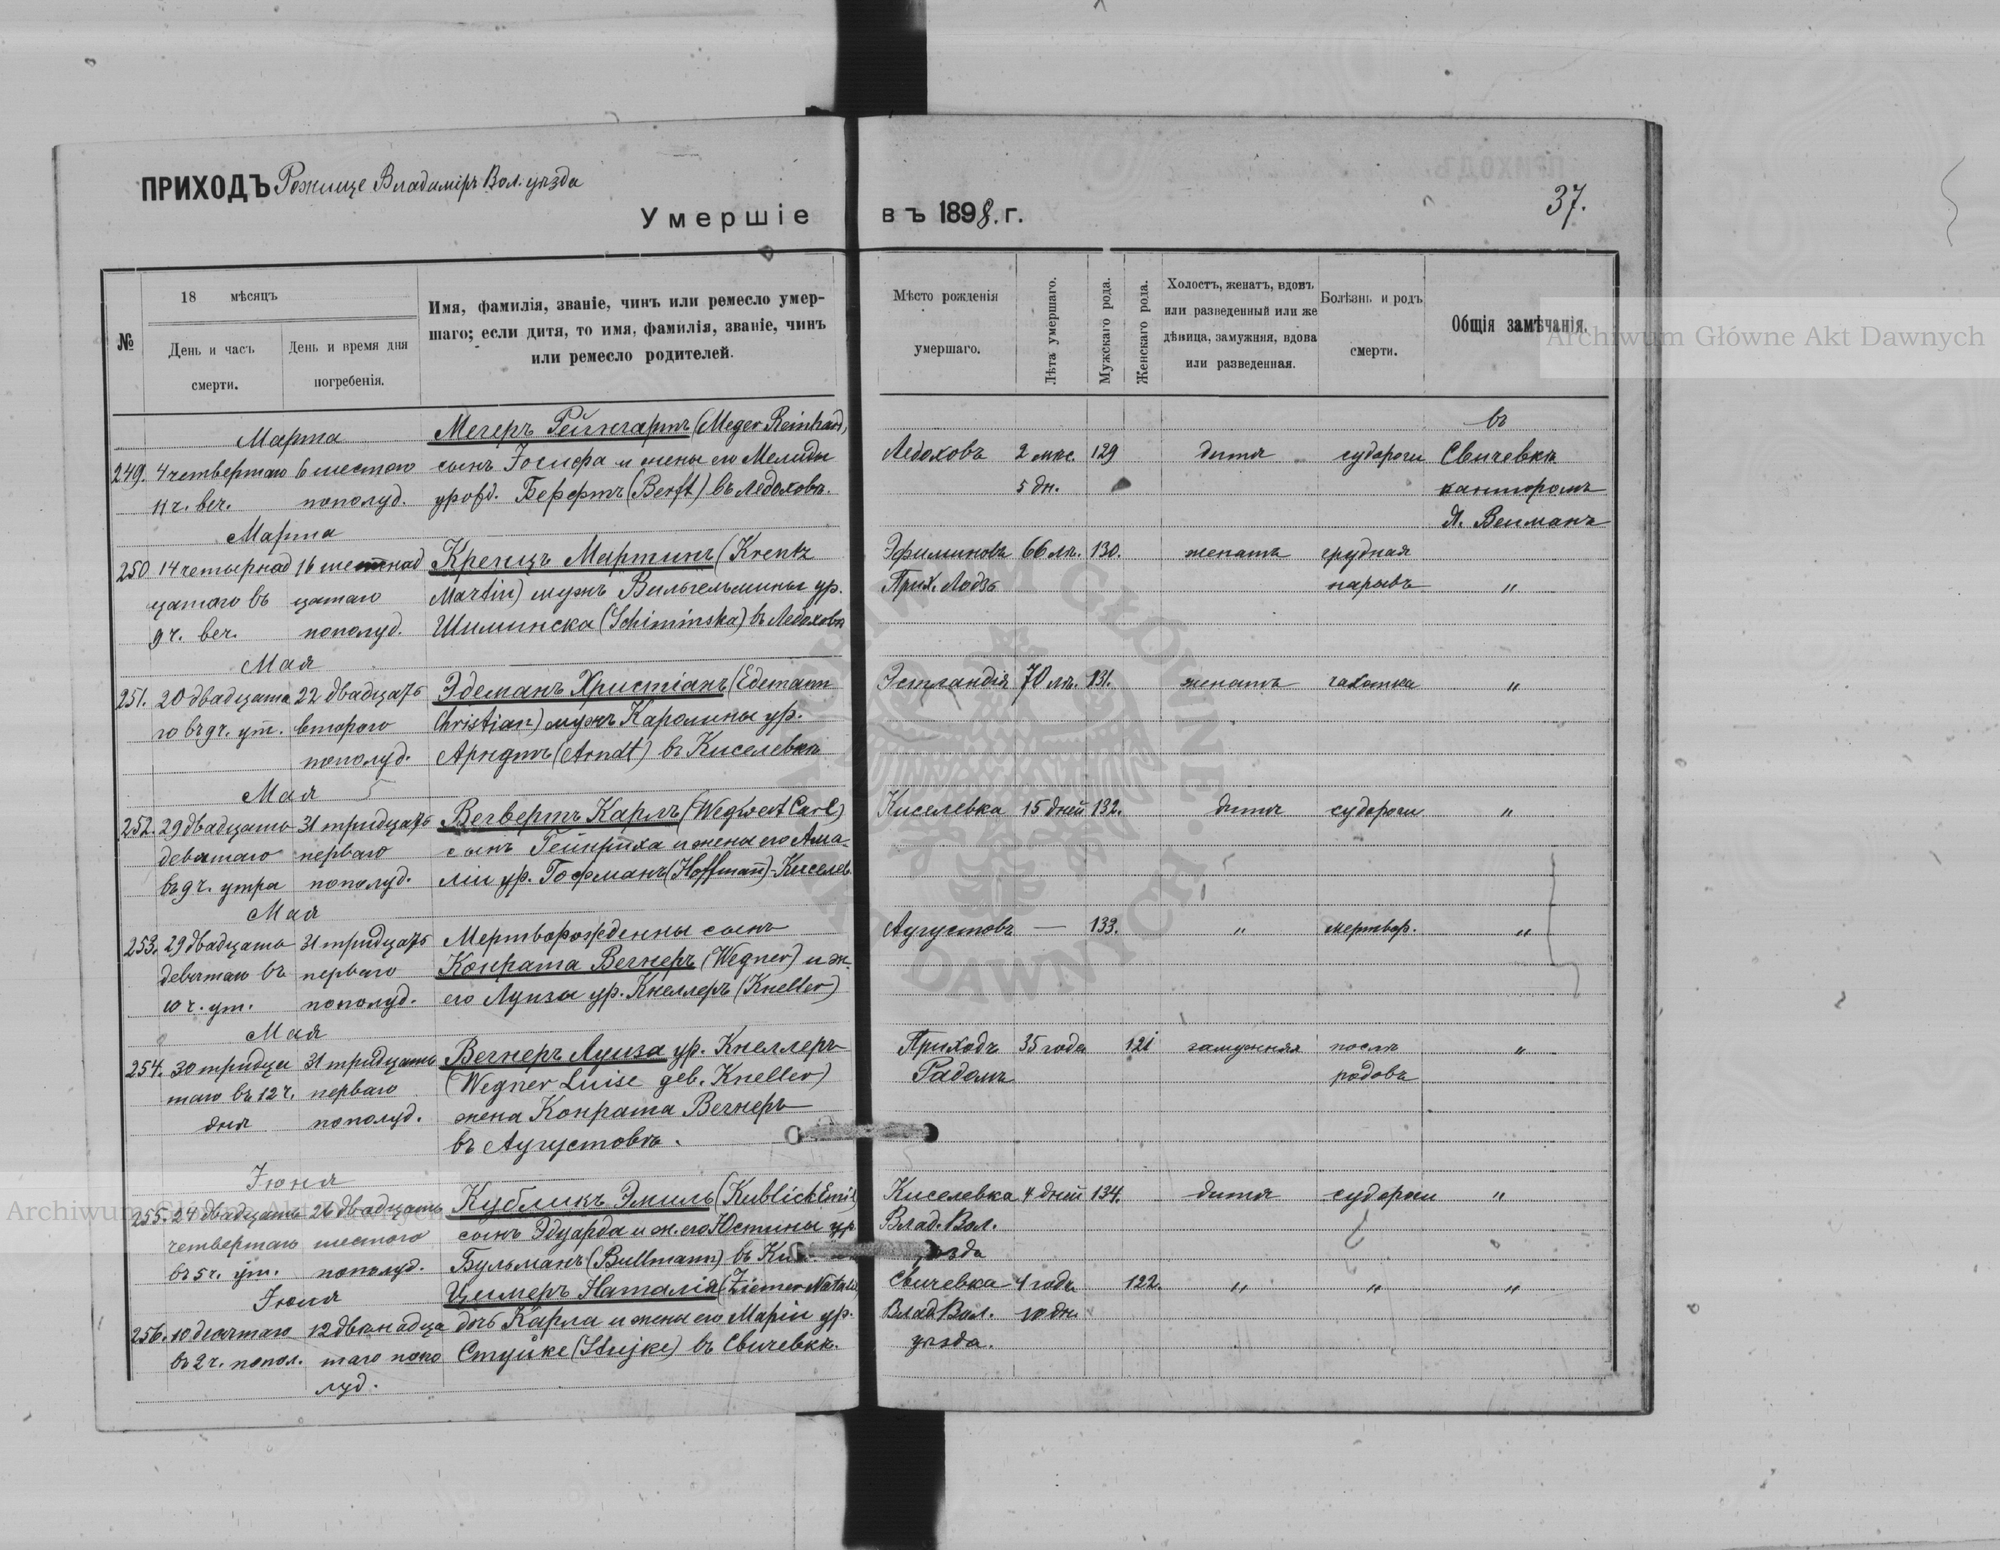 ПРИХОДЪ Рожище Владимiръ Вол. уѣзда
Умершіе въ 1898. г.
37.
№
18 мѣсяцъ
День и часъ смерти.
День и время дня погребенія.
Имя, фамилія, званіе, чинъ или ремесло умер-
шаго; если дитя, то имя, фамилія, званіе, чинъ
или ремесло родителей.
Мѣсто рожденія
умершаго.
Лѣта умершаго.
Мужскаго рода.
Женскаго рода.
Холостъ, женатъ, вдовъ
или разведенный или же
дѣвица, замужняя, вдова
или разведенная.
Болѣзнь и родъ
смерти.
Общія замѣчанія.
Archiwum Główne Akt Dawnych
Марта Мегеръ Рейнгартъ (Meger Reinhard), въ
249. 4 четвертаго 6 шестого сынъ Іосифа и жены его Мелиды Ледоховъ 2 мѣс. 129 дитя судороги Свичевкѣ
11 ч. веч. пополуд. урожд. Берфтъ (Berft) въ Ледоховѣ. 5 дн. канторомъ
Марта Я. Вейманъ
250. 14 четырнад 16 шестнад Кренцъ Мартинъ (Krentz Эфиминовъ 66 лѣ. 130. женатъ грудная
цатого въ цатаго Martin) мужъ Вильгельмины ур. Прих. Лодзь нарывъ "
9 ч. веч. пополуд. Шиминска (Schiminska) въ Ледоховѣ
Мая
251. 20 двадцата 22 двадцать Эдеманъ Христіанъ (Edemann Эстландія 70 лѣ. 131. женатъ чахотка "
го въ 9 ч. ут. второго Christian) мужъ Каролины ур.
пополуд. Арндтъ (Arndt) въ Киселевкѣ
Мая
252. 29 двадцать 31 тридцать Вегвертъ Карлъ (Wegwert Carl) Киселевка 15 дней 132. дитя судороги "
девятаго перваго сынъ Гейнриха и жены его Ама-
въ 9 ч. утра пополуд. ліи ур. Гофманъ (Hoffmann) - Киселев
Мая
253. 29 двадцать 31 тридцать Мертворожденны сынъ Аугустовъ — 133. " мертвор. "
девятаго въ перваго Конрата Вегнеръ (Wegner) и ж.
10 ч. ут. пополуд. его Луизы ур. Кнеллеръ (Kneller)
Мая
254. 30 тридца 31 тридцать Вегнеръ Луиза ур. Кнеллеръ Приходъ 35 года 121 замужняя послѣ "
таго въ 12 ч. перваго (Wegner Luise geb. Kneller) Радомъ родовъ
дня пополуд. жена Конрата Вегнеръ
въ Аугустовкѣ.
Іюня
255. 24 двадцать 26 двадцать Кубликъ Эмиль (Kublick Emil) Киселевка 4 дней 134. дитя судороги "
четвертаго шестого сынъ Эдуарда и ж. его Юстины ур Влад. Вол.
въ 5 ч. ут. пополуд. Бульманъ (Bullmann) въ Ки уѣзда
Іюля Цимеръ Наталія (Ziemer Natalie) Свичевка 4 года 122. " " "
256. 10 десятаго 12 двѣнадца дочь Карла и жены его Маріи ур. Влад Вол. 10 дн.
въ 2 ч. попол. таго попо Стуйке (Stujke) въ Свичевкѣ. уѣзда.
луд.
Archiwum Główne Akt Dawnych
ARCHIWUM GŁÓWNE AKT DAWNYCH